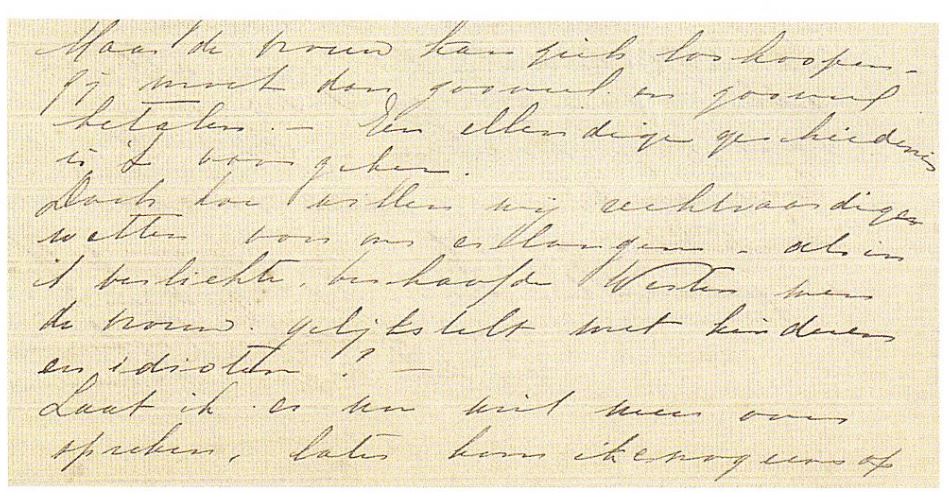 Maar de vrouw kan zich loskoopen -
zij moet dan zooveel en zooveel
betalen. — Een ellendige geschiedenis
is 't voor
Doch hoe willen wij rechtvaardige
wetten voor ons erlangen - als in
't verlichte, beschaafde Westen men
de vrouw gelijkstelt met kinderen
en idioten? —
Laat ik er nu niet meer over
spreken, later kom ik er nog eens op